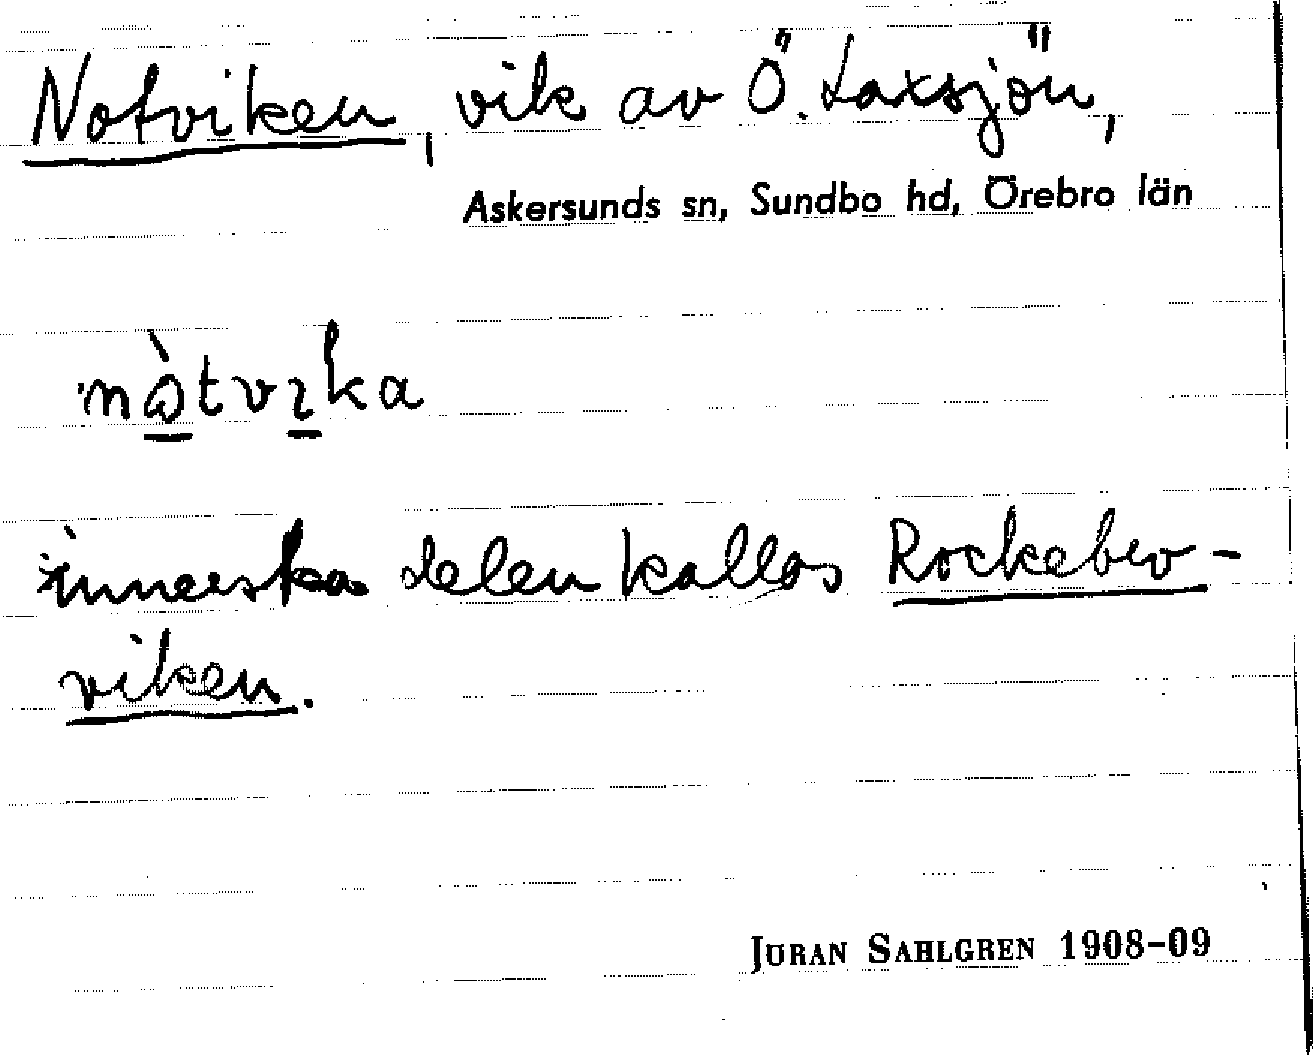 Notviken, vik av Ö. Laxsjön,
Askersunds sn, Sundbo hd, Örebro län
nòtvıka
innersta delen kallas Rockebro-
viken.
JÖRAN SAHLGREN 1908-09